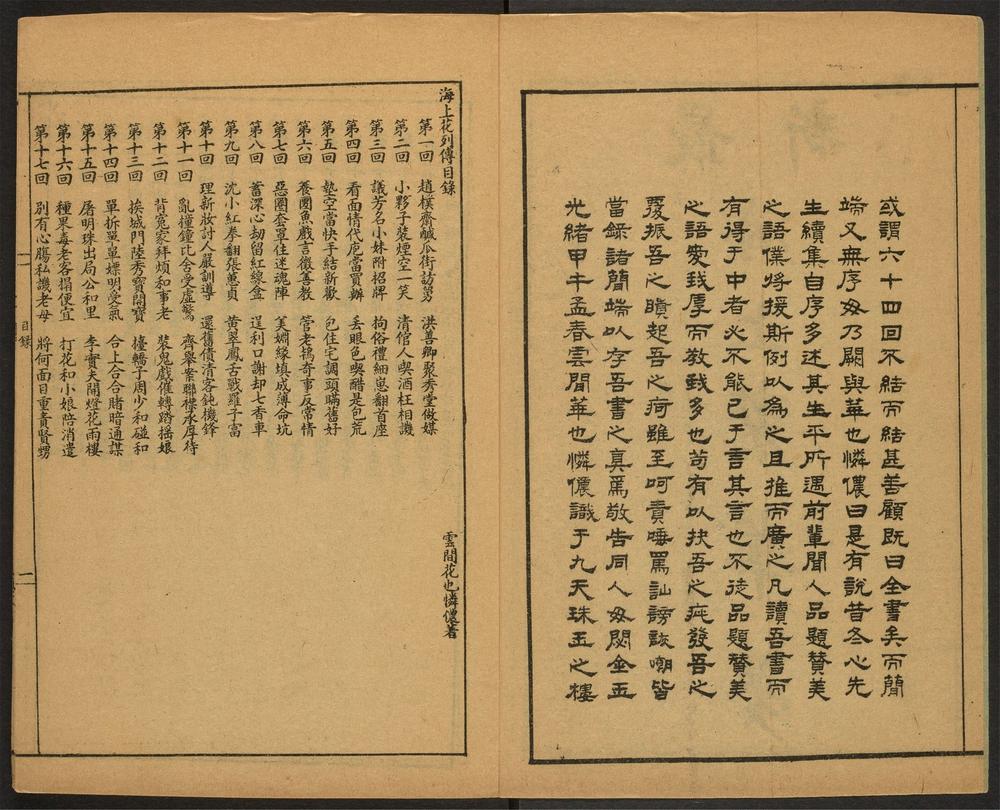 或謂六十四回不結而結甚善顧既曰全書矣而簡
端又無序毋乃闕與華也憐儂曰是有說昔冬心先
生續集自序多述其生平所遇前輩聞人品題贊美
之語僕將援斯例以為之且推而廣之凡讀吾書而
有得于中者必不能已于言其言也不徒品題贊美
之語愛我厚而教我多也苟有以抉吾之疵發吾之
覆振吾之聵起吾之疴雖至呵責唾罵訕謗詼嘲皆
當錄諸簡端以存吾書之真焉敬告同人毋閟金玉
光緒甲午孟春雲間華也憐儂識于九天珠玉之樓
海上花列傳目錄
雲間花也憐儂著
第一回 趙樸齋鹹瓜街訪舅 洪善卿聚秀堂做媒
第二回 小夥子裝煙空一笑 清倌人喫酒枉相譏
第三回 議芳名小妹附招牌 拘俗禮細崽翻首座
第四回 看面情代庖當買辦 丟眼色喫醋是包荒
第五回 墊空當快手結新歡 包住宅調頭瞞舊好
第六回 養囡魚戲言徵善教 管老鴇奇事反常情
第七回 惡圈套罩住迷魂陣 美姻緣填成薄命坑
第八回 蓄深心劫留紅線盒 逞利口謝却七香車
第九回 沈小紅拳翻張蕙貞 黃翠鳳舌戰羅子富
第十回 理新妝討人嚴訓導 還舊債清客鈍機鋒
第十一回 亂撞鐘比舍受虛驚 齊舉案聯襟承厚待
第十二回 背冤家拜煩和事老 裝鬼戲催轉踏搖娘
第十三回 挨城門陸秀寶開寶 擡轎子周少和碰和
第十四回 單拆單單嫖明受氣 合上合合賭暗通謀
第十五回 屠明珠出局公和里 李實夫開燈花雨樓
第十六回 種果毒老客搨便宜 打花和小娘陪消遣
第十七回 別有心腸私譏老母 將何面目重責賢甥
目錄
一